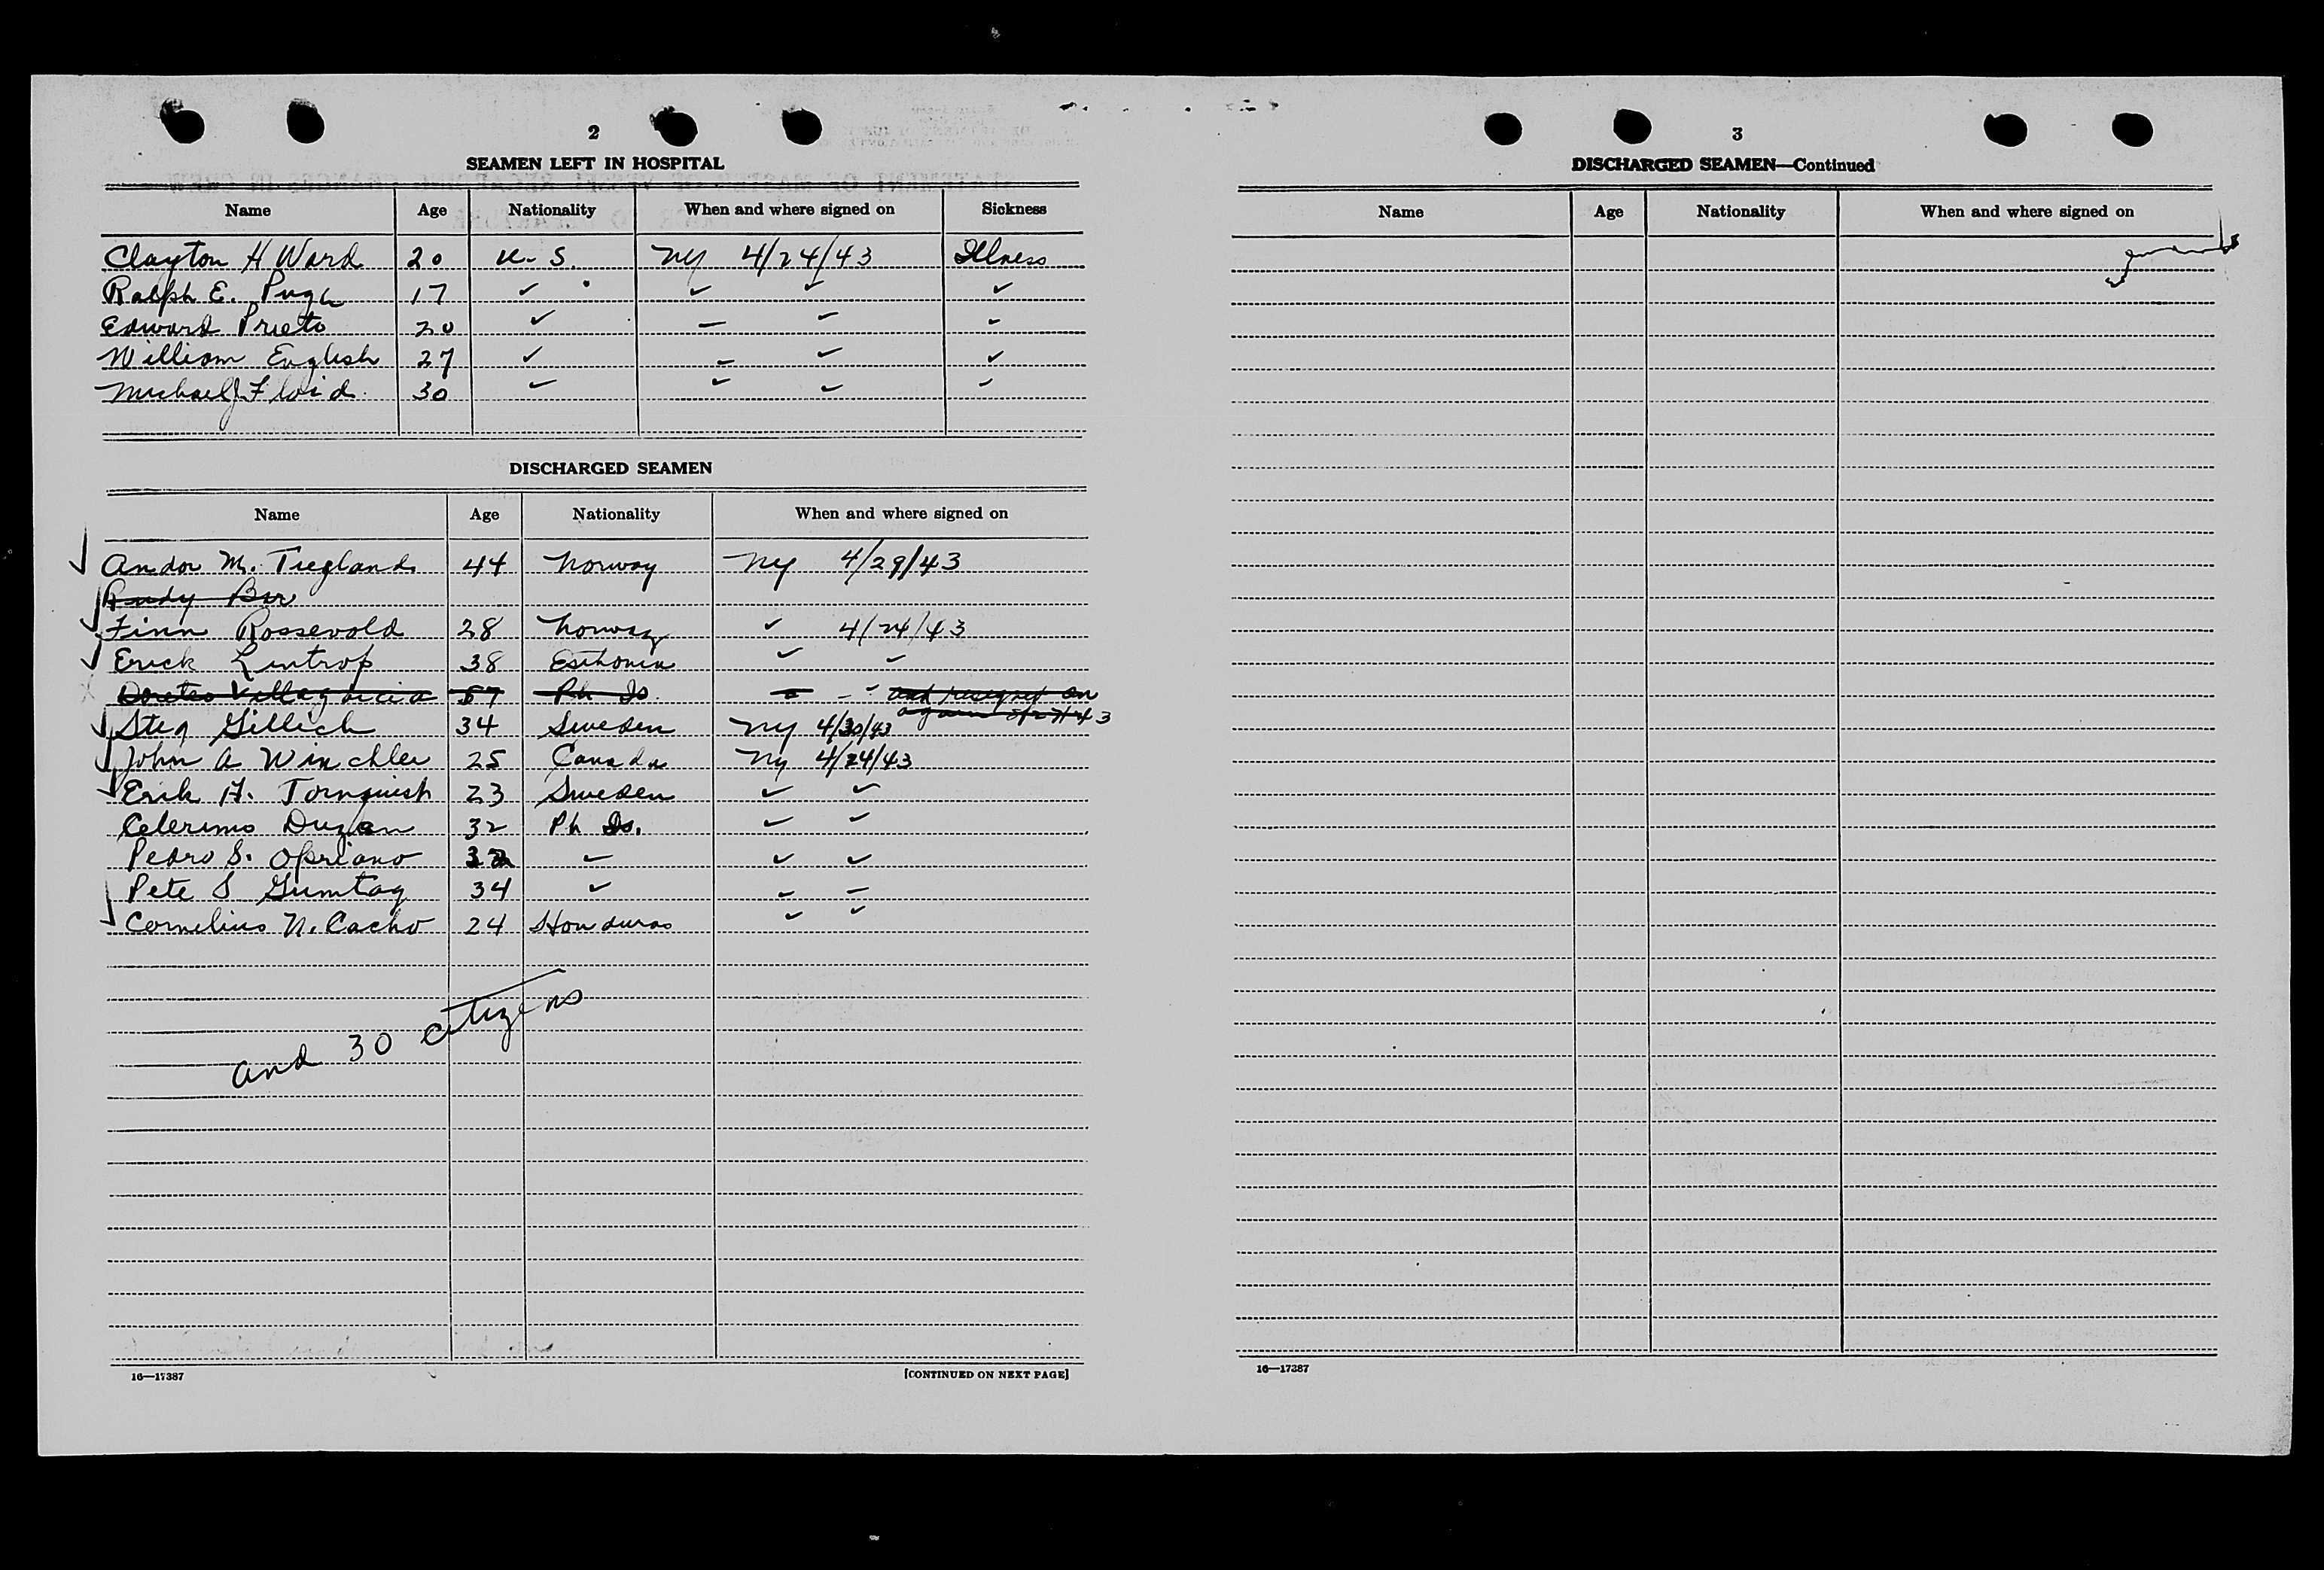 2
SEAMEN LEFT IN HOSPITAL
Name Age Nationality When and where signed on Sickness
Clayton H Ward 20 U.S. NY 4/24/43 Illness
Ralph E. Pugh 17 ✓ ✓ ✓ ✓
Edward Prieto 20 ✓ ✓ ✓ ✓
William English 27 ✓ ✓ ✓ ✓
Michael J Floid 30 ✓ ✓ ✓ ✓
DISCHARGED SEAMEN
Name Age Nationality When and where signed on
Andor M. Tiegland 44 Norway NY 4/29/43
Finn Rossevold 28 Norway ✓ 4/24/43
Erick Lintrop 38 Esthonia ✓ ✓
57 Ph Is. and resigned on
again
Stig Gillich 34 Sweden NY 4/30/43
John A Winchler 25 Canada NY 4/24/43
Erik H. Tornquist 23 Sweden ✓ ✓
Celerimo Duzan 32 Ph Is. ✓ ✓
Pedro S. Opriano 32 ✓ ✓ ✓
Pete S Gumtag 34 ✓ ✓ ✓
Cornelius N. Cacho 24 Honduras ✓ ✓
and 30 citizens
16—17387 [CONTINUED ON NEXT PAGE]
3
DISCHARGED SEAMEN—Continued
Name Age Nationality When and where signed on
16—17387